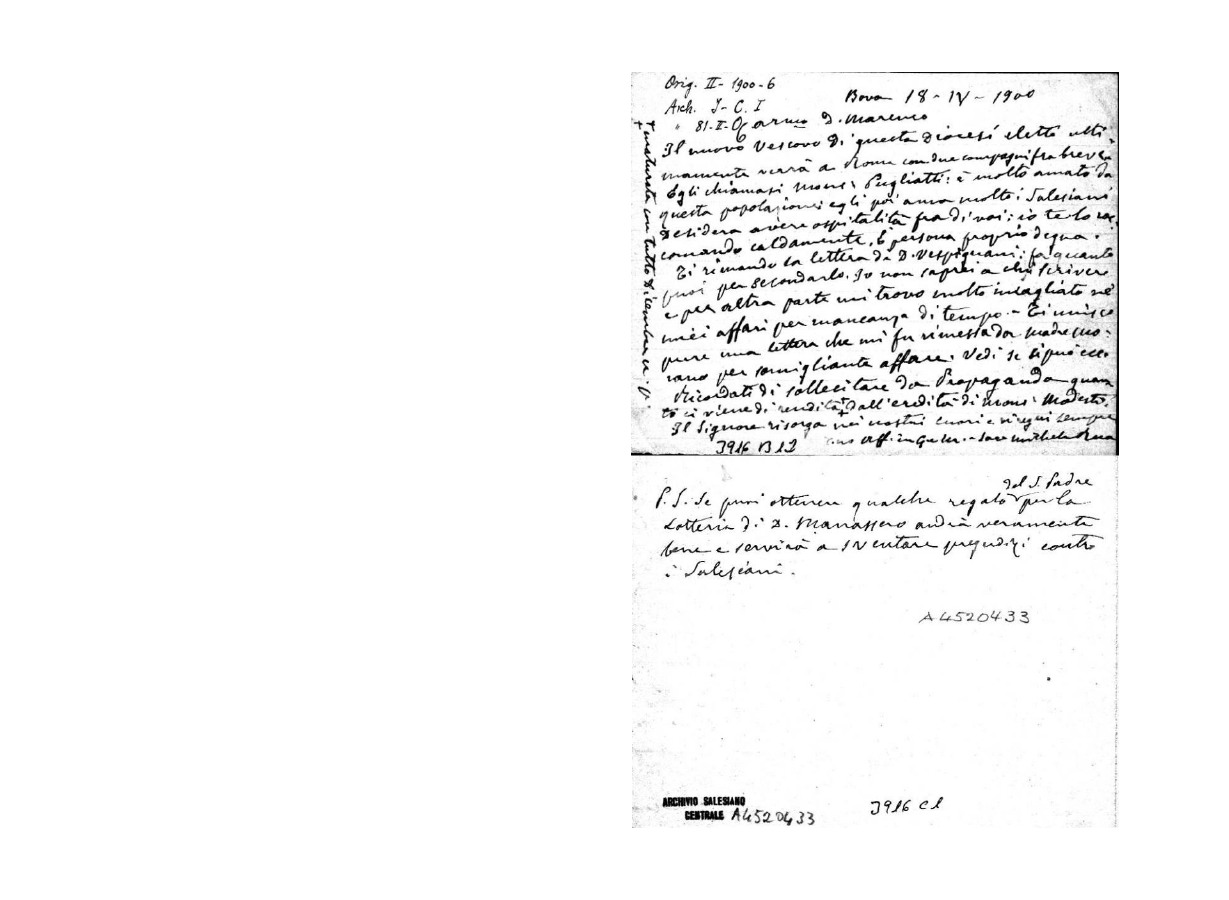 Orig. II- 1900-6
Arch. I- C. I
" 81-II-
Bova 18-IV-1900
D. Marenco
Il nuovo Vescovo di questa Diocesi eletto ulti-
mamente verrà a Roma con due compagni fra breve.
Egli chiamasi Mons: Pugliatti: è molto amato da
questa popolazione; egli poi ama molto i Salesiani
Desidera avere ospitalità fra di voi; io te lo rac
comando caldamente. È persona proprio degna.
Ti rimando la lettera di D. Vespignani; fa quanto
puoi per secondarlo. Io non saprei a chi scrivere
e per altra parte mi trovo molto incagliato ne'
miei affari per mancanza di tempo. - Ti unisco
pure una lettera che mi fu rimessa da Madre Mo-
rano per somigliante affare. Vedi se si può
Ricordati di sollecitare da Propaganda quan
to ci viene di rendita + dall'eredità di Mons: Modesto.
Il Signore risorga nei nostri cuori e vi regni sempre
tuo aff. in G. e M. - Sac. Michele Rua
+ maturata in tutto Dicembre
3916 B12
P.S. Se puoi ottenere qualche regalo del S. Padre per la
Lotteria di D. Manassero andrà veramente
bene e servirà a sventare pregiudizi contro
i Salesiani.
A4520433
ARCHIVIO SALESIANO
CENTRALE A4520433
3916 C1